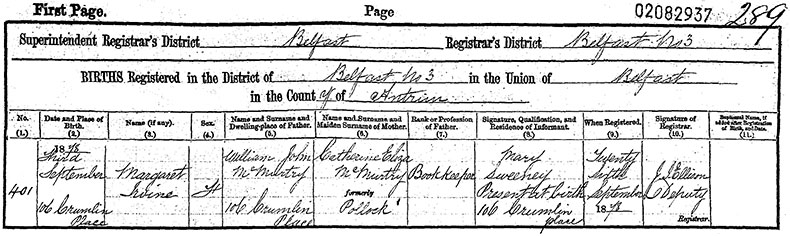 First Page. Page 02082937 289
Superintendent Registrar's District Belfast Registrar's District Belfast No 3
BIRTHS Registered in the District of Belfast No 3 in the Union of Belfast
in the County of Antrim
No. (1.)
Date and Place of Birth. (2.)
Name (if any). (3.)
Sex. (4.)
Name and Surname and Dwelling-place of Father. (5.)
Name and Surname and Maiden Surname of Mother. (6.)
Rank or Profession of Father. (7.)
Signature, Qualification, and Residence of Informant. (8.)
When Registered. (9.)
Signature of Registrar. (10.)
Baptismal Name, if added after Registration of Birth, and Date. (11.)
401
Third
September
106 Crumlin
Place
Margaret
Irvine
F
William John
McMurtry
106 Crumlin
Place
Catherine Eliza
McMurtry
formerly
Pollock
Bookkeeper
Mary
Sweeney
Present at birth
106 Crumlin
place
Twenty
fifth
September
18
Deputy
Registrar.